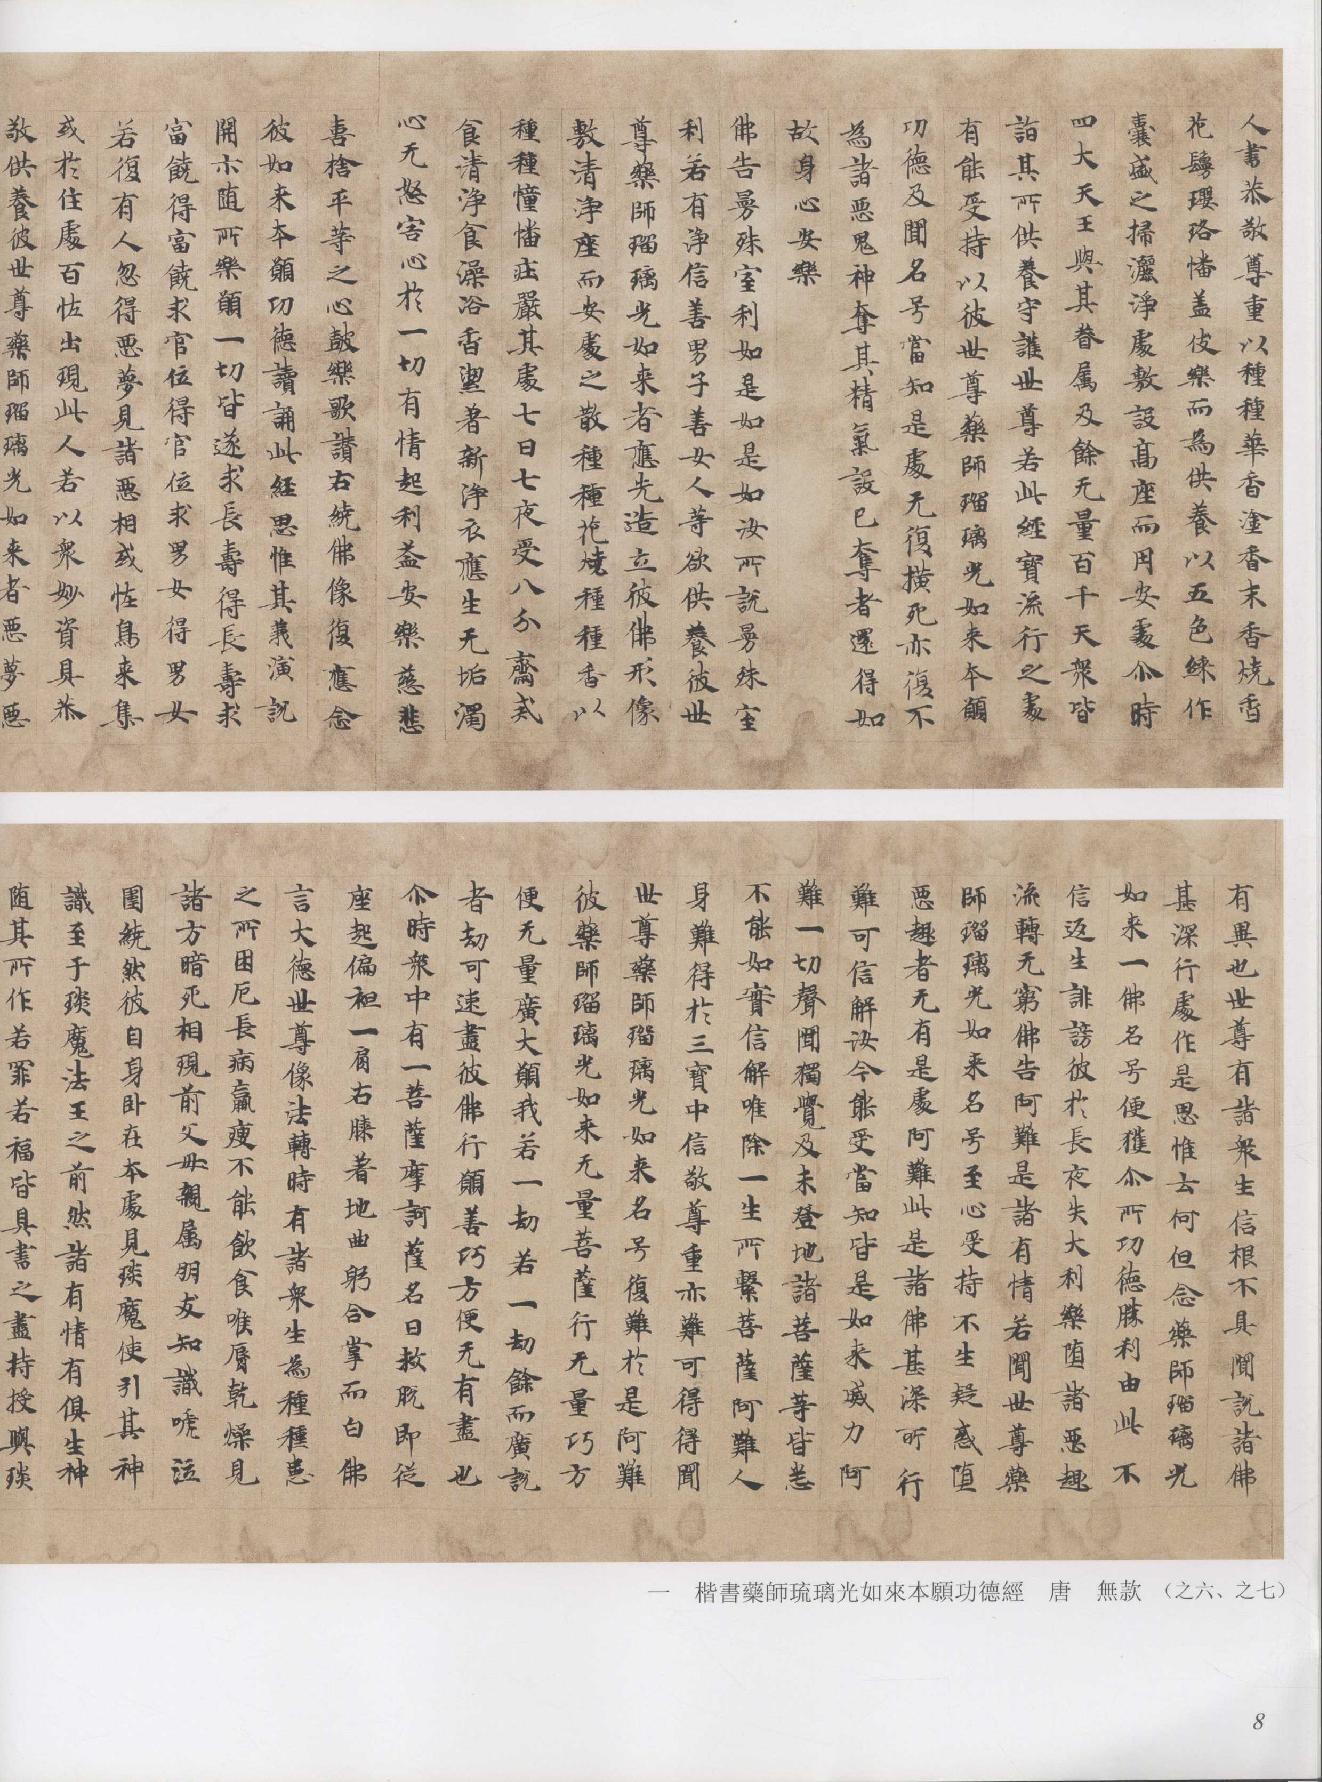 人書恭敬尊重以種種華香塗香末香燒香
花鬘瓔珞幡盖伎樂而為供養以五色綵作
囊盛之掃灑淨處敷設高座而用安處尒時
四大天王與其眷属及餘无量百千天衆皆
詣其所供養守護世尊若此經寶流行之處
有能受持以彼世尊藥師瑠璃光如来本願
功德及聞名号當知是處无復橫死亦復不
為諸惡鬼神奪其精氣設已奪者還得如
故身心安樂
佛告曼殊室利如是如是如汝所說曼殊室
利若有淨信善男子善女人等欲供養彼世
尊藥師瑠璃光如来者應先造立彼佛形像
敷清淨座而安處之散種種花燒種種香以
種種幢幡莊嚴其處七日七夜受八分齋戒
食清淨食澡浴香潔著新淨衣應生无垢濁
心无怒害心於一切有情起利益安樂慈悲
喜捨平等之心鼓樂歌讚右繞佛像復應念
彼如来本願功德讀誦此經思惟其義演說
開示随所樂願一切皆遂求長壽得長壽求
富饒得富饒求官位得官位求男女得男女
若復有人忽得惡夢見諸惡相或恠鳥来集
或於住處百恠出現此人若以衆妙資具恭
敬供養彼世尊藥師瑠璃光如来者惡夢惡
有異也世尊有諸衆生信根不具聞說諸佛
甚深行處作是思惟云何但念藥師瑠璃光
如来一佛名号便獲尒所功德勝利由此不
信返生誹謗彼於長夜失大利樂堕諸惡趣
流轉无窮佛告阿難是諸有情若聞世尊藥
師瑠璃光如来名号至心受持不生疑惑堕
惡趣者无有是處阿難此是諸佛甚深所行
難可信解汝今能受當知皆是如来威力阿
難一切聲聞獨覺及未登地諸菩薩等皆悉
不能如實信解唯除一生所繫菩薩阿難人
身難得於三寶中信敬尊重亦難可得得聞
世尊藥師瑠璃光如来名号復難於是阿難
彼藥師瑠璃光如来无量菩薩行无量巧方
便无量廣大願我若一劫若一劫餘而廣說
者劫可速盡彼佛行願善巧方便无有盡也
尒時衆中有一菩薩摩訶薩名曰救脫即從
座起偏袒一肩右膝著地曲躬合掌而白佛
言大德世尊像法轉時有諸衆生為種種患
之所困厄長病羸瘦不能飲食唯脣乾燥見
諸方暗死相現前父母親属朋友知識啼泣
圍繞然彼自身卧在本處見琰魔使引其神
識至于琰魔法王之前然諸有情有俱生神
随其所作若罪若福皆具書之盡持授與琰
一　楷書藥師琉璃光如來本願功德經　唐　無款　（之六、之七）
8